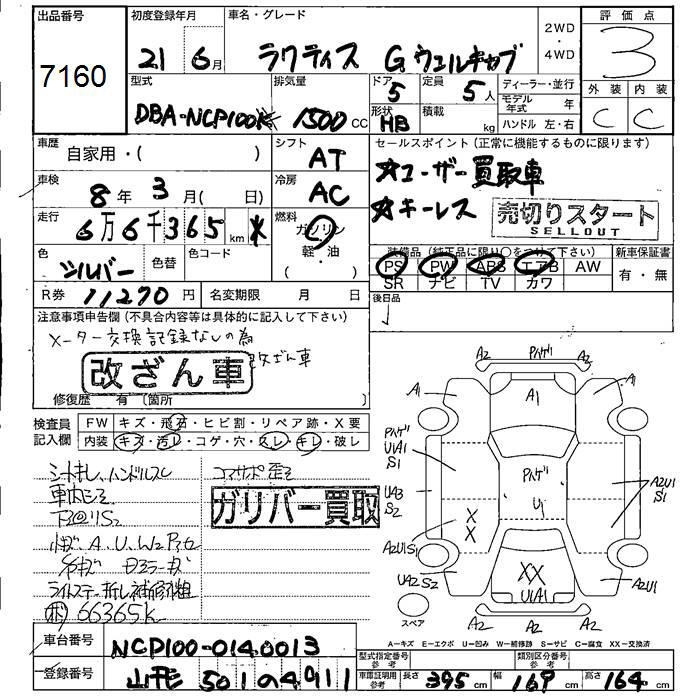 出品番号
7160
初度登録年月
21 6月
車名・グレード
ラクティス G ウェルキャブ
2WD
・
4WD
評価点
3
外装 内装
C C
型式
DBA-NCP100
排気量
1500cc
ドア 5
形状 HB
定員 5人
積載 kg
ディーラー・並行
モデル年式 年
ハンドル 左・右
車歴
自家用・( )
シフト
AT
車検
8年 3月( 日)
冷房
AC
走行
6万6千365km
燃料
ガソリン
軽・油
・( )
色
シルバー
色替
色コード
R券 11270円
名変期限 月 日
セールスポイント(正常に機能するものに限ります)
☆ユーザー買取車
☆キーレス
売切りスタート
SELLOUT
装備品(純正品に限り○をつけて下さい)
PS PW ABS エアB AW
SR ナビ TV カワ
新車保証書
有・無
後日品
注意事項申告欄(不具合内容等は具体的に記入して下さい)
メーター交換記録なしの為
改ざん車
改ざん車
修復歴 有〔箇所 〕
検査員記入欄
FW キズ・飛石・ヒビ割・リペア跡・X要
内装 キズ・汚レ・コゲ・穴・スレ・キレ・破レ
シートキレ、ハンドルスレ
コアサポ歪ミ
ガリバー買取
ライトステー折レ補修粗
66365K
A2 バンパゲ A2
A1 A1 A1
U1A1
S1
UA3
S2
U1
A2U1
S1
A2U1S1
XX
UA2S2
XX
U1A1
A2U1
A2 A2 A2
スペア
A-キズ E-エクボ U-凹み W-補修跡 S-サビ C-腐食 XX-交換済
車台番号
NCP100-0140013
登録番号
山形 501 0 4911
型式指定番号
参考
類別区分番号
参考
車庫証明用
参考
長さ 395cm 幅 169cm 高さ 164cm